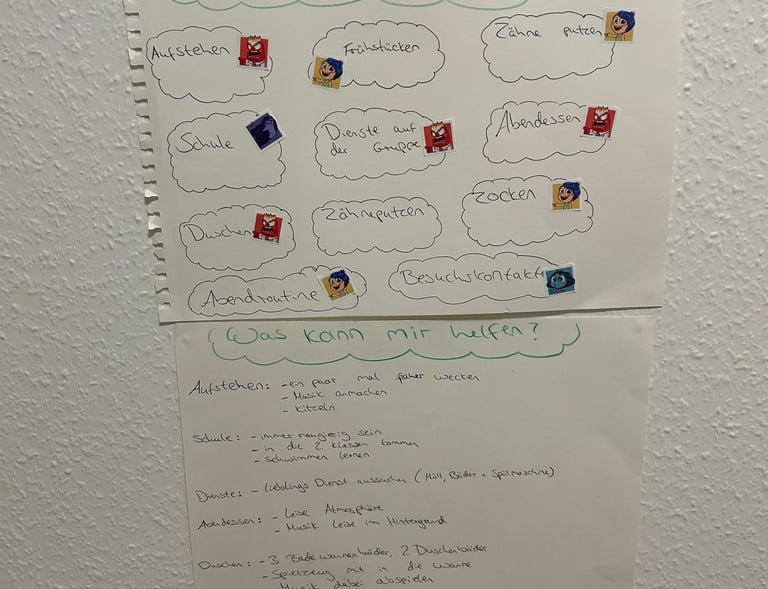 Aufstehen
Frühstücken
Zähne putzen
Schule
Dienste auf
der Gruppe
Abendessen
Duschen
Zähneputzen
Zocken
Abendroutine
Besuchskontakte
Was kann mir helfen?
Aufstehen: - ein paar mal früher wecken
- Musik anmachen
- kitzeln
Schule: - immer neugierig sein
- in die 2 klasse kommen
- schwimmen lernen
Dienste: - lieblings Dienst aussuchen (Müll, Bäder + Spülmaschine)
Abendessen: - Leise Atmosphäre
- Musik leise im Hintergrund
Duschen: - 3 Badewannenbäder, 2 Duschenbäder
- Spielzeug mit in die Wanne
- Musik dabei abspielen